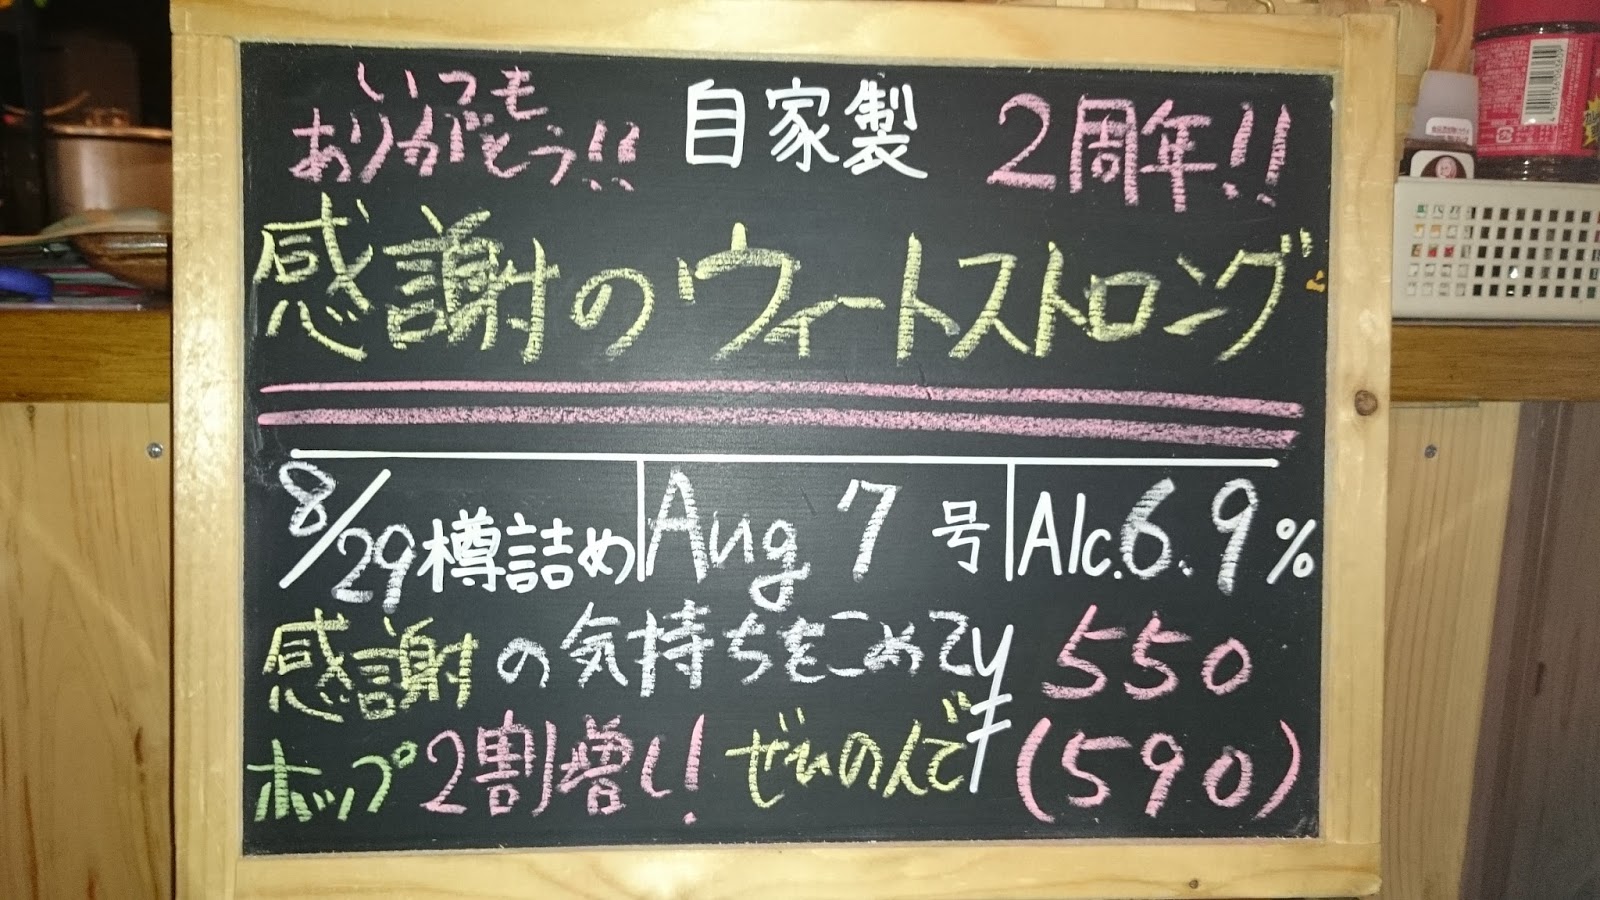 いつも
ありがとう!!
自家製
2周年!!
感謝のウィートストロング
8/29樽詰め
Aug 7号
Alc.6.9%
感謝の気持ちをこめて
ホップ2割増し! ぜひのんで
¥550
(590)